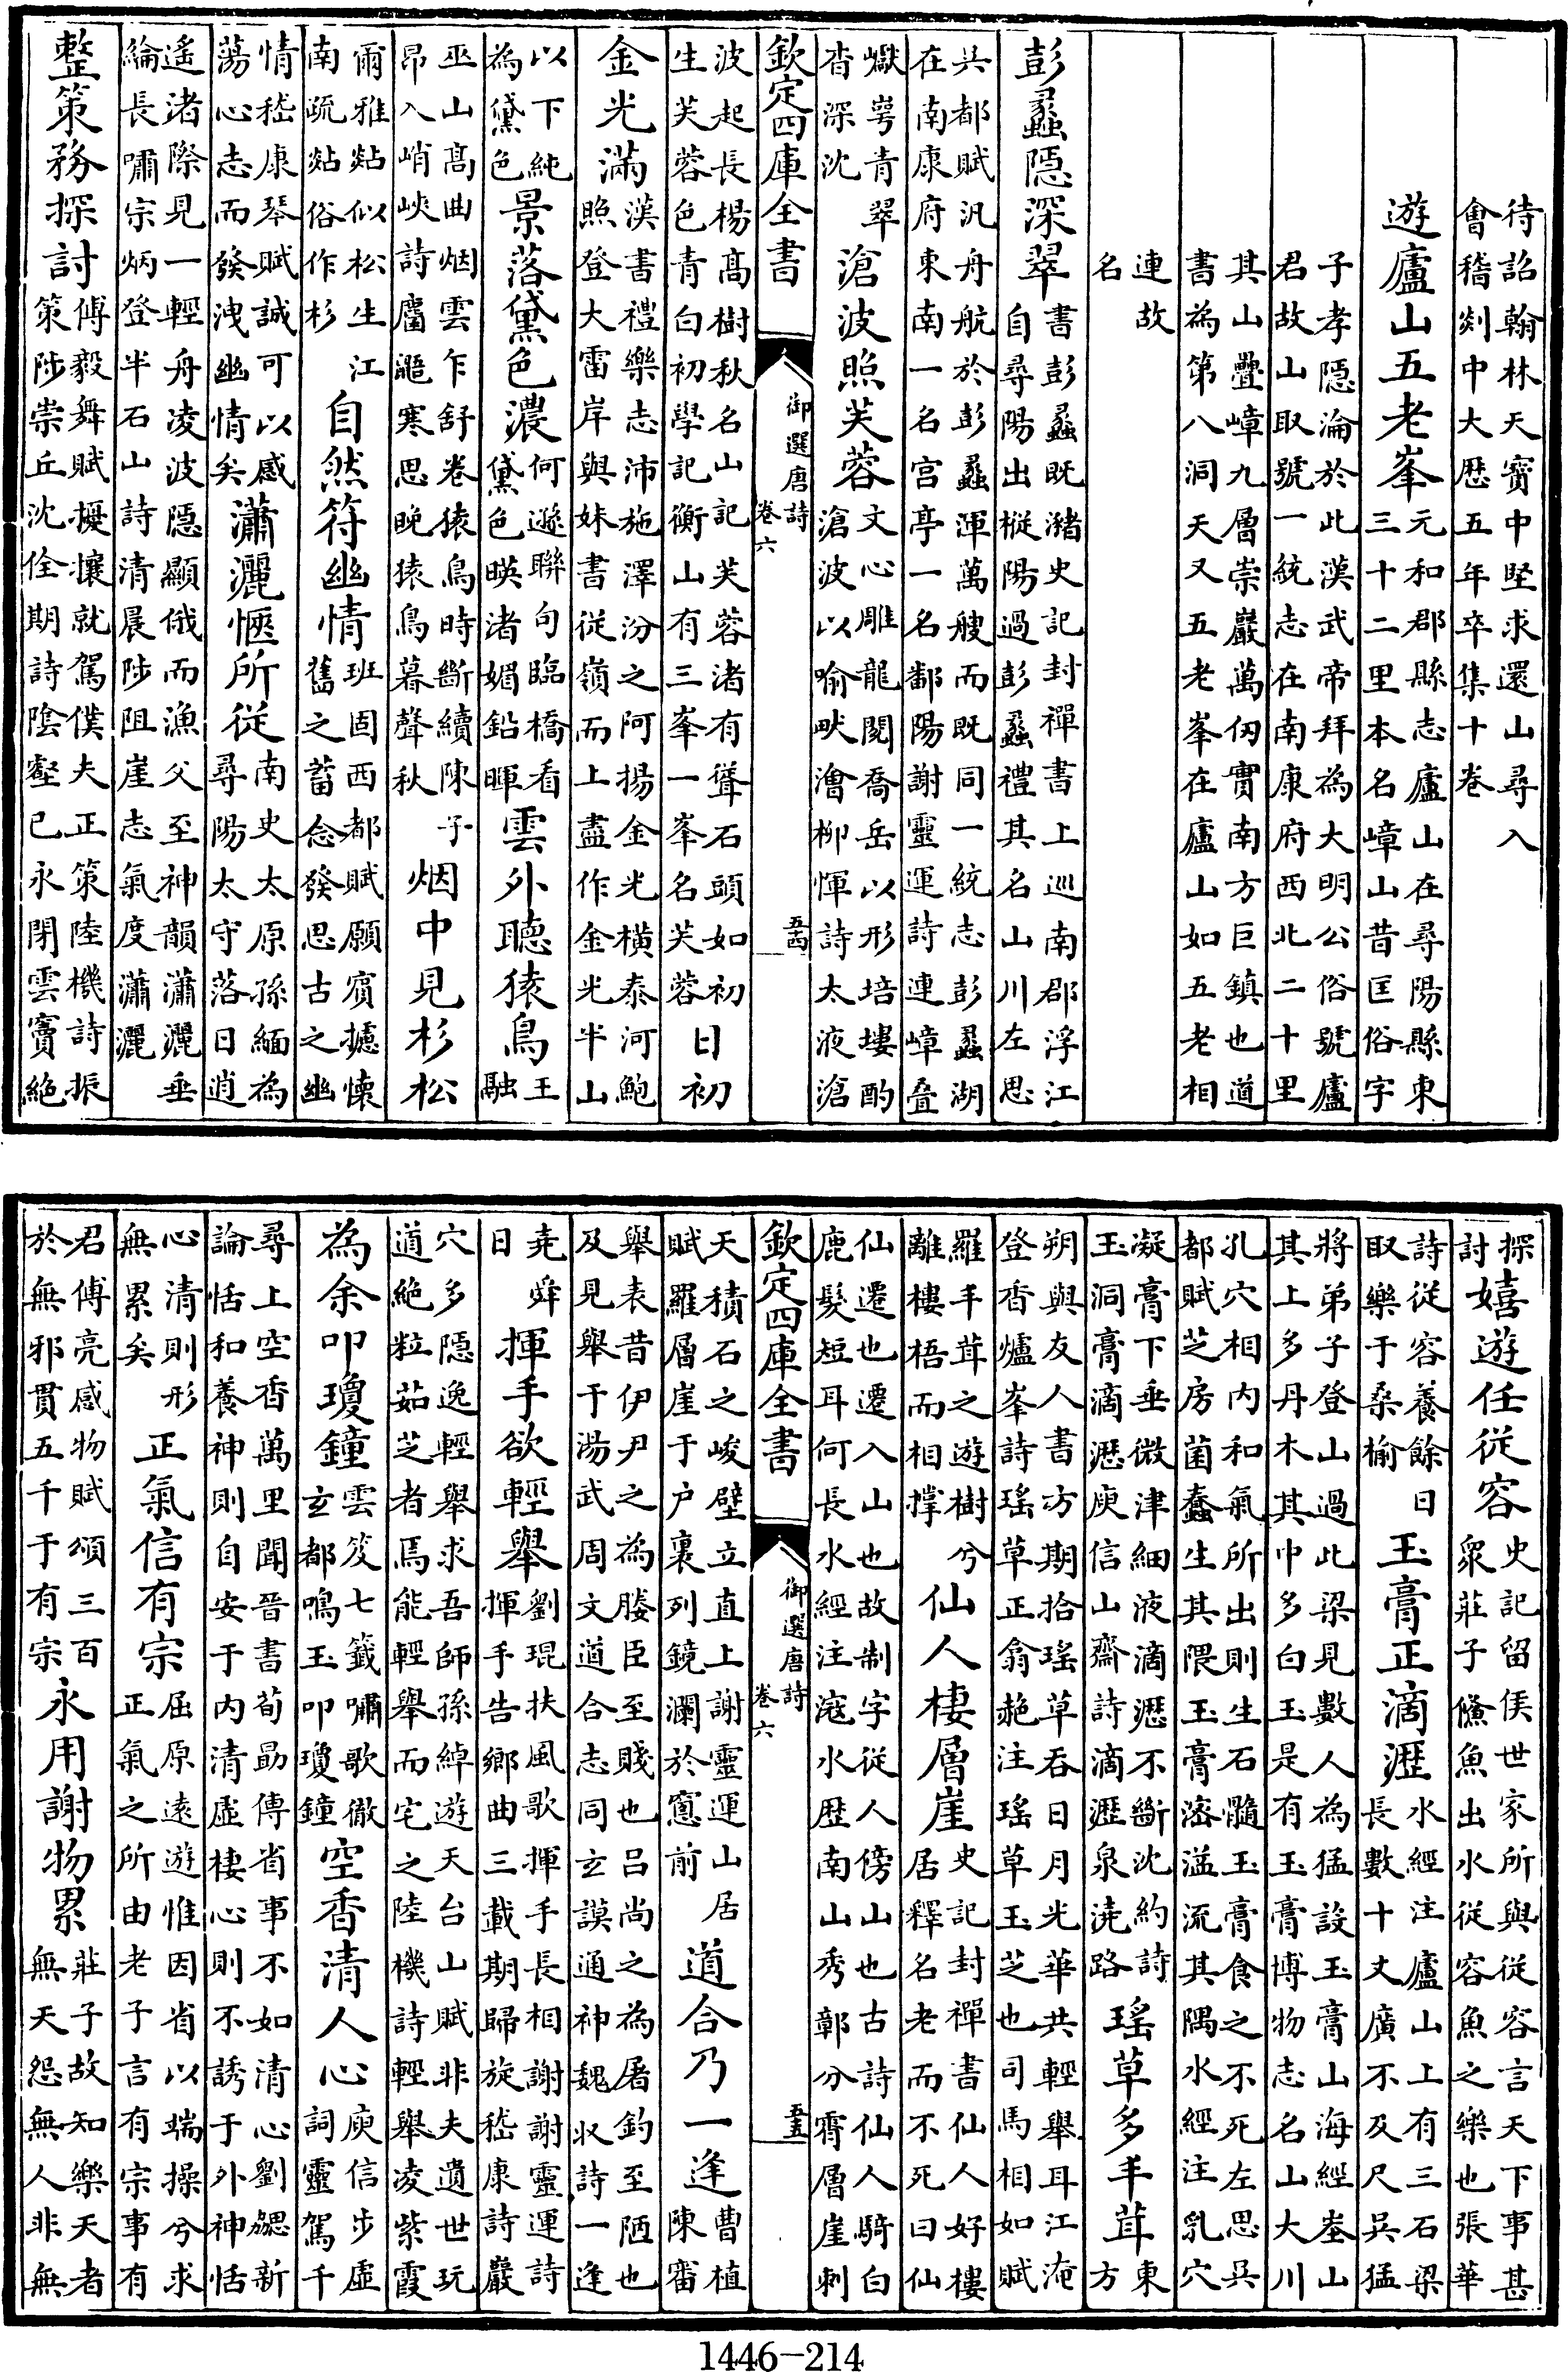 待詔翰林天寳中堅求還山尋入
會稽剡中大厯五年卒集十卷
遊廬山五老峯 元和郡縣志廬山在尋陽縣東
三十二里本名嶂山昔匡俗字
子孝隠淪於此漢武帝拜為大明公俗號廬
君故山取號一統志在南康府西北二十里
其山疊嶂九層崇巖萬仭實南方巨鎮也道
書為第八洞天又五老峯在廬山如五老相
連故
名
彭蠡隠深翠 書彭蠡既瀦史記封禪書上巡南郡浮江
自尋陽出樅陽過彭蠡禮其名山川左思
吳都賦汎舟航於彭蠡渾萬艘而既同一統志彭蠡湖
在南康府東南一名宫亭一名鄱陽謝靈運詩連嶂叠
巘崿青翠
杳深沈 滄波照芙蓉 文心雕龍閱喬岳以形培塿酌
滄波以喻畎澮柳惲詩太液滄
欽定四庫全書 御選唐詩
卷六 五四
波起長楊髙樹秋名山記芙蓉渚有聳石頭如初
生芙蓉色青白初學記衡山有三峯一峯名芙蓉 日初
金光滿 漢書禮樂志沛施澤汾之阿揚金光横泰河鮑
照登大雷岸與妹書從嶺而上盡作金光半山
以下純
為黛色 景落黛色濃 何遜聯句臨橋看
黛色暎渚媚鉛暉 雲外聽猿鳥 王
融
巫山髙曲烟雲乍舒卷猿鳥時斷續陳子
昂入峭峽詩屬鼯寒思晚猿鳥暮聲秋 烟中見杉松
爾雅㸃似松生江
南疏㸃俗作杉 自然符幽情 班固西都賦願賔攄懐
舊之蓄念發思古之幽
情嵇康琴賦誠可以感
蕩心志而發洩幽情矣 瀟灑愜所從 南史太原孫緬為
尋陽太守落日逍
遥渚際見一輕舟凌波隠顯俄而漁父至神韻瀟灑垂
綸長嘯宗炳登半石山詩清晨陟阻崖志氣度瀟灑
整策務探討 傅毅舞賦擾攘就駕僕夫正策陸機詩振
策陟崇丘沈佺期詩陰壑已永閉雲竇絶
探
討 嬉遊任從容 史記留侯世家所與從容言天下事甚
衆莊子鯈魚出水從容魚之樂也張華
詩從容養餘日
取樂于桑榆 玉膏正滴瀝 水經注廬山上有三石梁
長數十丈廣不及尺吳猛
將弟子登山過此梁見數人為猛設玉膏山海經峚山
其上多丹木其中多白玉是有玉膏博物志名山大川
孔穴相内和氣所出則生石髓玉膏食之不死左思吳
都賦芝房菌蠢生其隈玉膏滵溢流其隅水經注乳穴
凝膏下垂微津細液滴瀝不斷沈約詩
玉洞膏滴瀝庾信山齋詩滴瀝泉澆路 瑶草多丰茸 東
方
朔與友人書方期拾瑶草吞日月光華共輕舉耳江淹
登香爐峯詩瑶草正翕赩注瑶草玉芝也司馬相如賦
羅丰茸之遊樹兮
離樓梧而相撑 仙人棲層崖 史記封禪書仙人好樓
居釋名老而不死曰仙
仙遷也遷入山也故制字從人傍山也古詩仙人騎白
鹿髮短耳何長水經注滱水歴南山秀鄣分霄層崖刺
欽定四庫全書 御選唐詩
卷六 五五
天積石之峻壁立直上謝靈運山居
賦羅層崖于户裏列鏡瀾於窻前 道合乃一逢 曹植
陳審
舉表昔伊尹之為媵臣至賤也吕尚之為屠釣至陋也
及見舉于湯武周文道合志同玄謨通神魏收詩一逢
堯舜
日 揮手欲輕舉 劉琨扶風歌揮手長相謝謝靈運詩
揮手告鄉曲三載期歸旋嵇康詩巖
穴多隠逸輕舉求吾師孫綽遊天台山賦非夫遺世玩
道絶粒茹芝者焉能輕舉而宅之陸機詩輕舉凌紫霞
為余叩瓊鐘 雲笈七籤嘯歌徹
玄都鳴玉叩瓊鐘 空香清人心 庾信步虛
詞靈駕千
尋上空香萬里聞晉書荀勗傳省事不如清心劉勰新
論恬和養神則自安于内清虚棲心則不誘于外神恬
心清則形
無累矣 正氣信有宗 屈原遠遊惟因省以端操兮求
正氣之所由老子言有宗事有
君傅亮感物賦頌三百
於無邪貫五千于有宗 永用謝物累 莊子故知樂天者
無天怨無人非無
1446-214